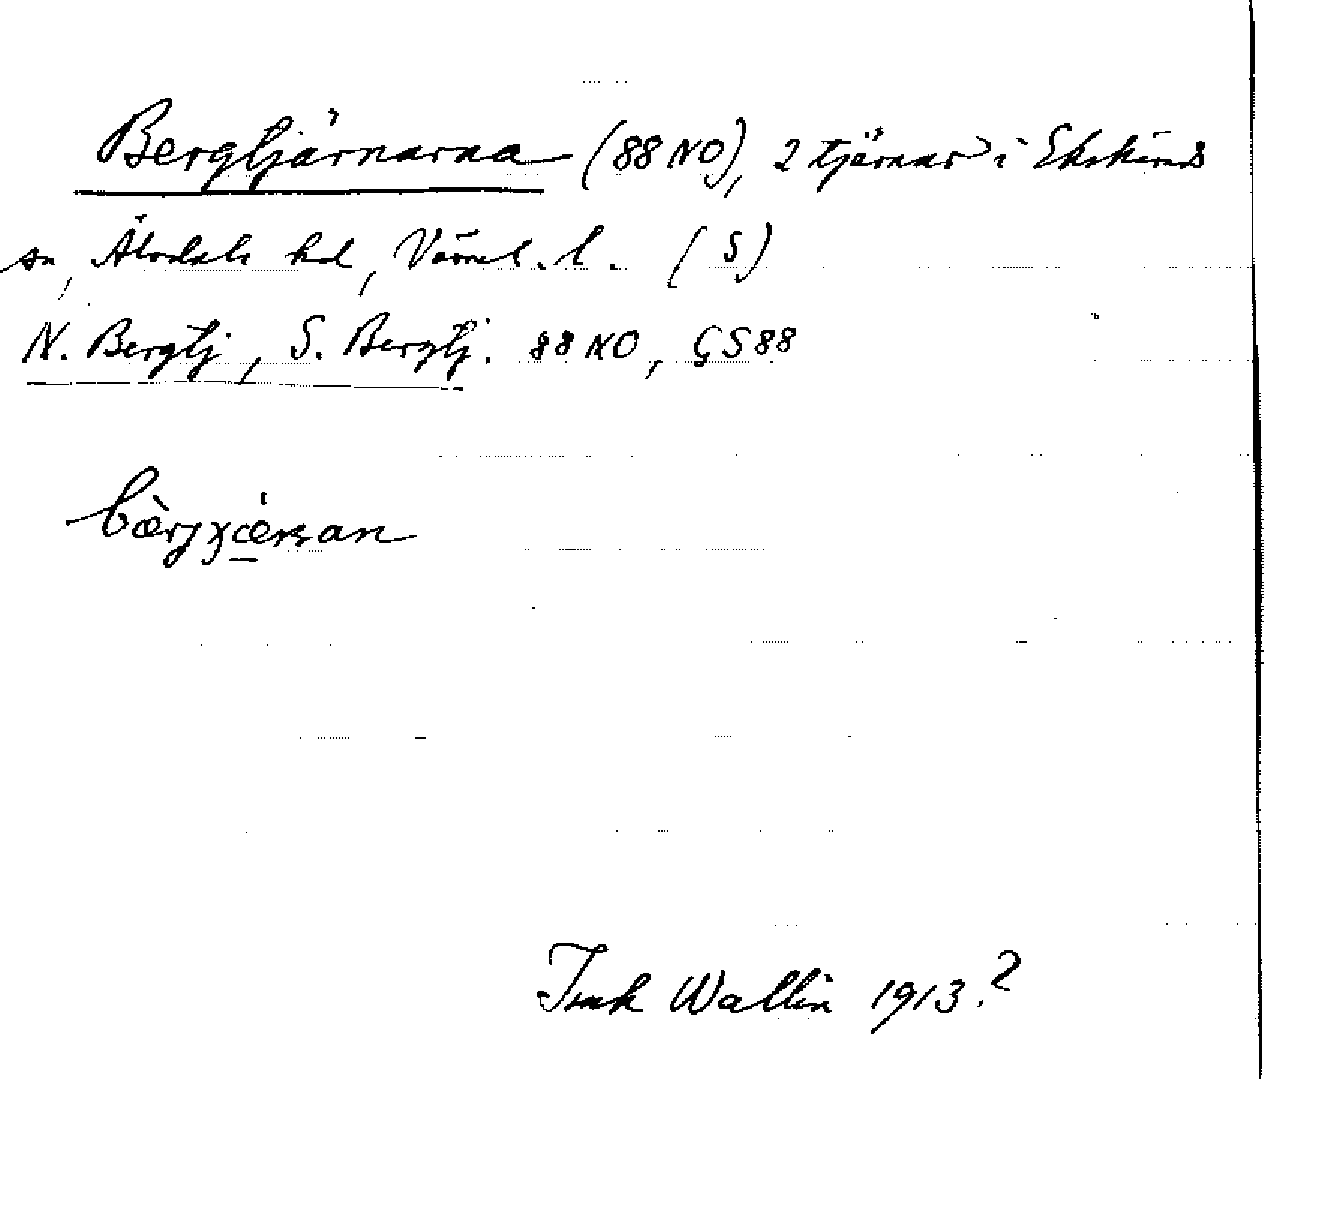 Bergtjärnarna (88 NO), 2 tjärnar i Ekshärads
sn, Älvdals hd, Värml. l. (S)
N. Bergtj, S. Bergtj. 88 NO, GS 88
Wallin 1913.?